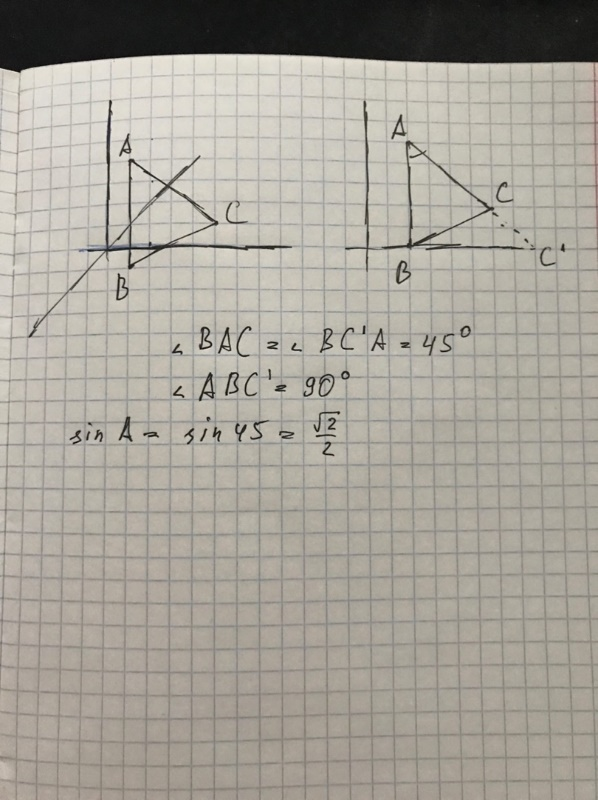 A
A
C
C
B
B
C'
∟ BAC = ∟ BC'A = 45°
∟ ABC' = 90°
sin A = sin 45 = √2/2